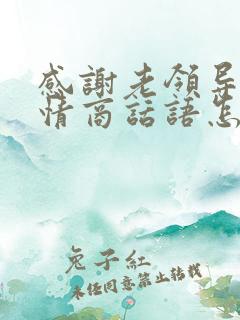 感謝老領导
情商話語怎
兔子紅
未经同意禁止转载